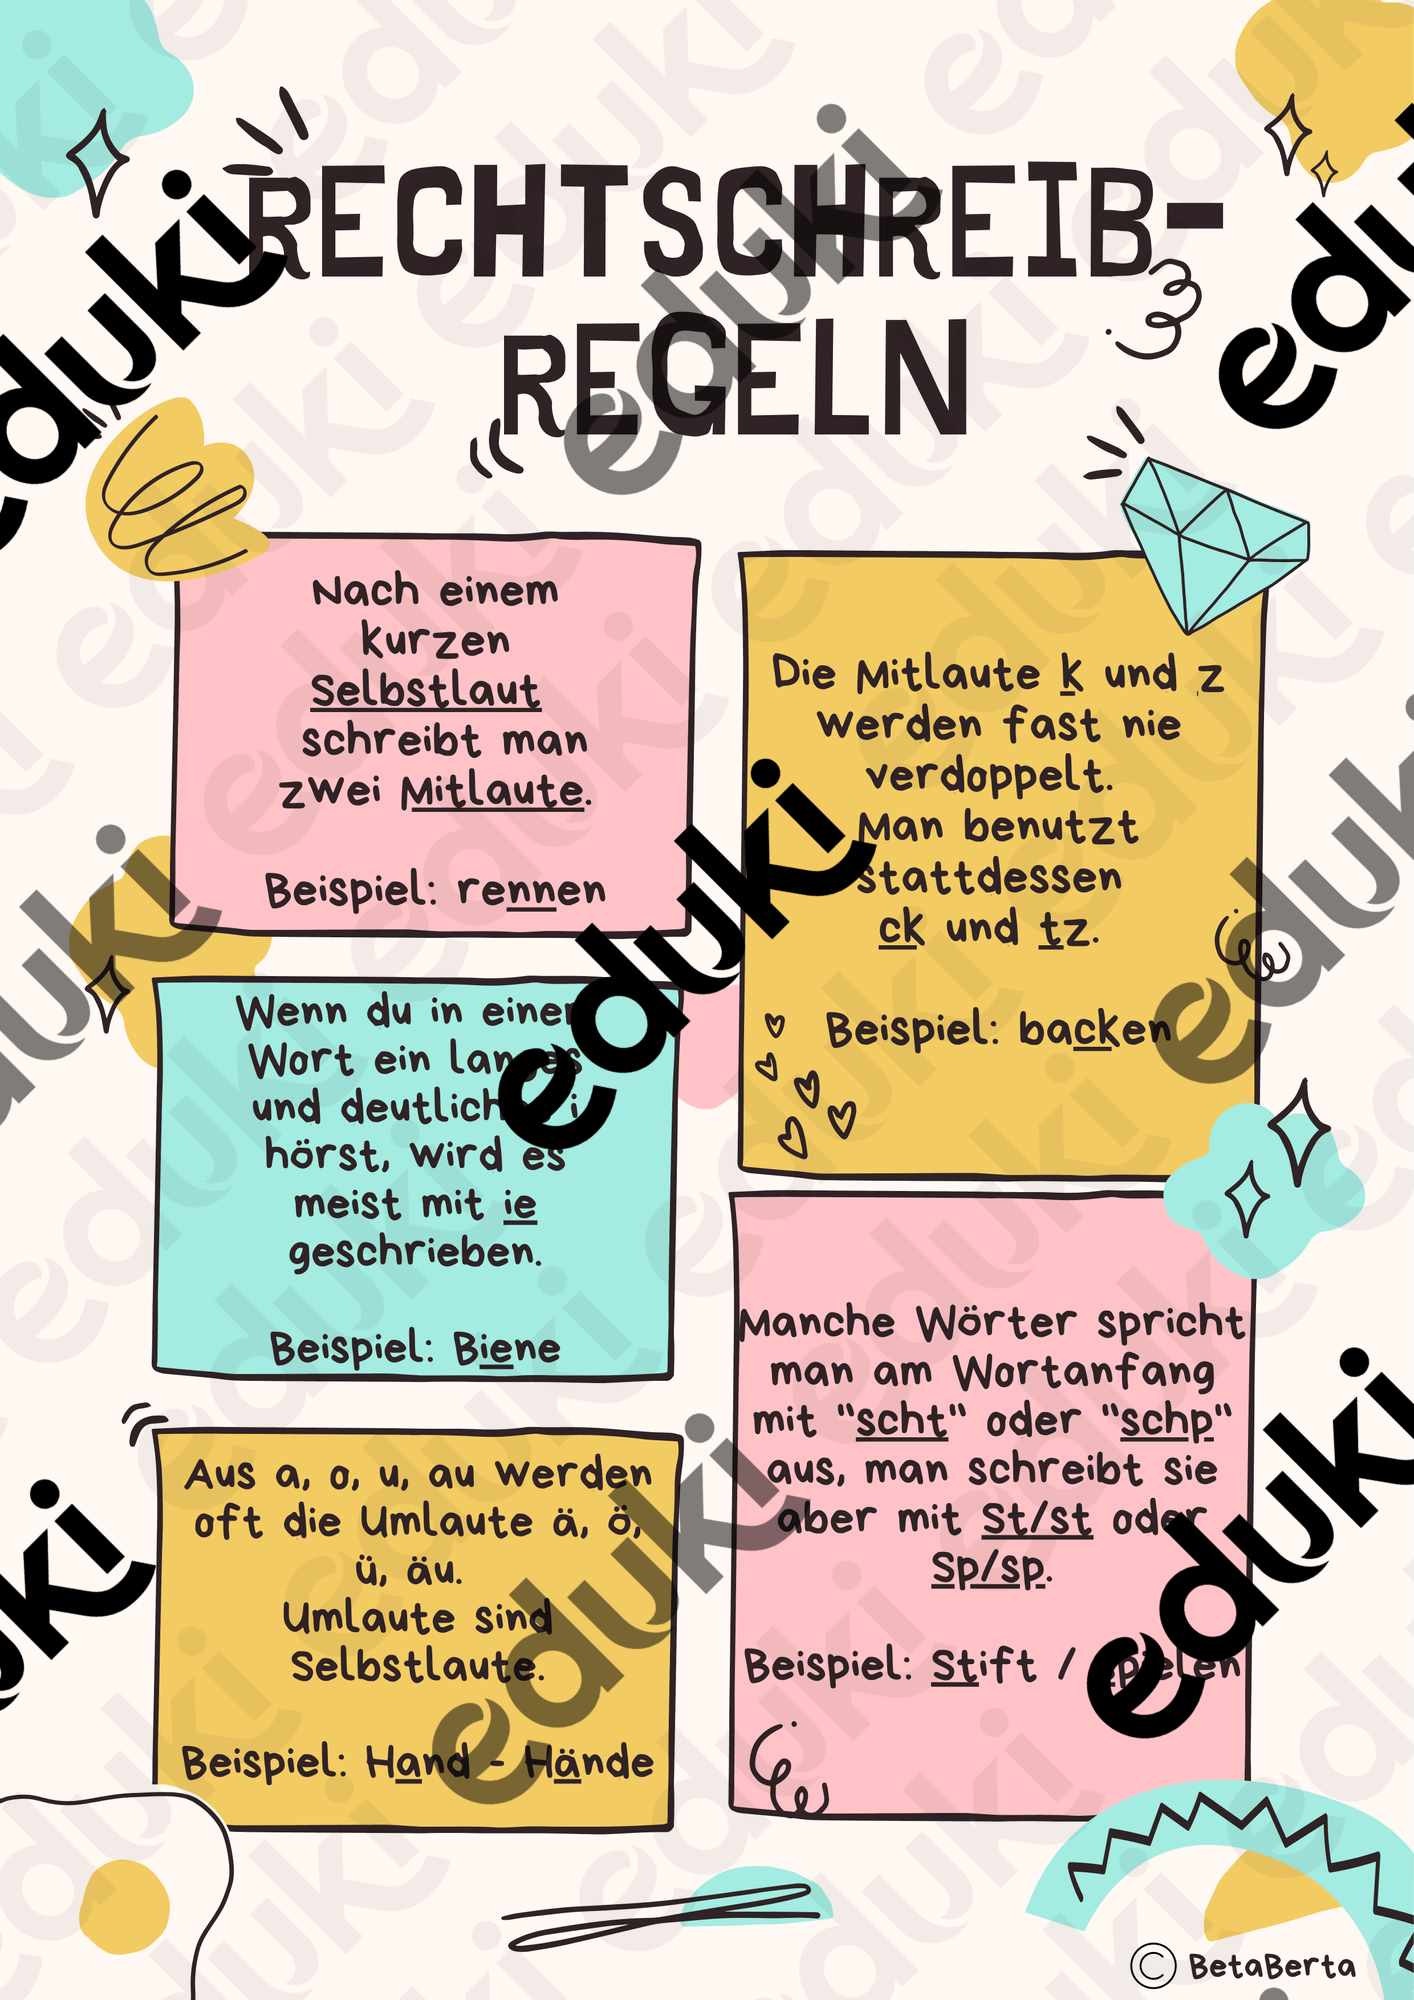 RECHTSCHREIB-
REGELN
Nach einem
kurzen
Selbstlaut
schreibt man
zwei Mitlaute.
Beispiel: rennen
Wenn du in einem
Wort ein langes
und deutliches i
hörst, wird es
meist mit ie
geschrieben.
Beispiel: Biene
Aus a, o, u, au werden
oft die Umlaute ä, ö,
ü, äu.
Umlaute sind
Selbstlaute.
Beispiel: Hand - Hände
Die Mitlaute k und z
werden fast nie
verdoppelt.
Man benutzt
stattdessen
ck und tz.
Beispiel: backen
Manche Wörter spricht
man am Wortanfang
mit "scht" oder "schp"
aus, man schreibt sie
aber mit St/st oder
Sp/sp.
Beispiel: Stift / spielen
© BetaBerta
eduki
eduki
eduki
eduki
eduki
eduki
eduki